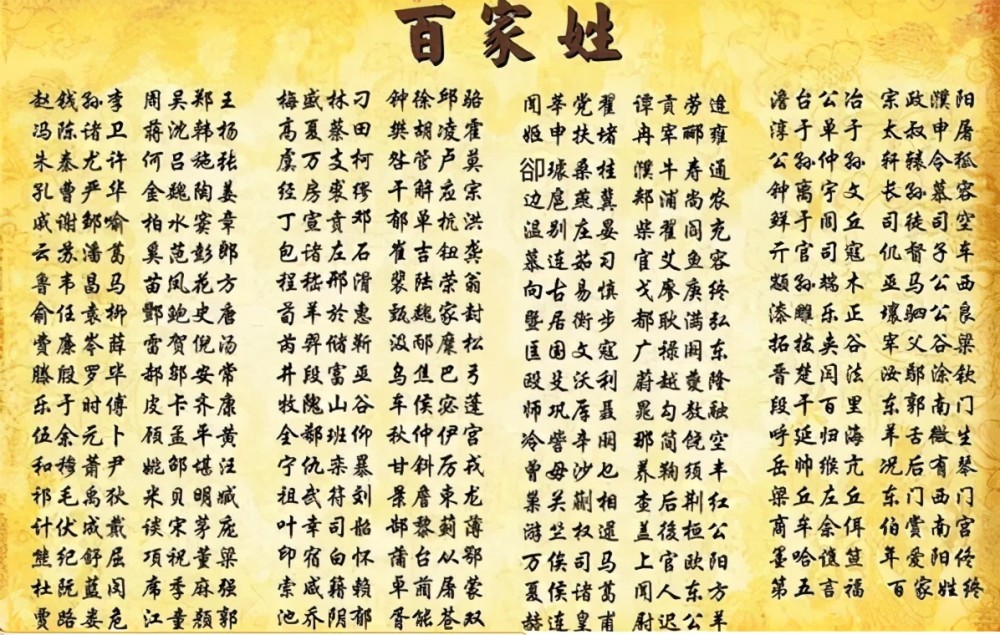 百家姓
赵钱孙李 周吴郑王
冯陈诸卫 蒋沈韩杨
朱秦尤许 何吕施张
孔曹严华 金魏陶姜
戚谢邹喻 柏水窦章
云苏潘葛 奚范彭郎
鲁韦昌马 苗凤花方
俞任袁柳 酆鲍史唐
费廉岑薛 雷贺倪汤
滕殷罗毕 郝邬安常
乐于时傅 皮卡齐康
伍余元卜 顾孟平黄
和穆萧尹 姚邵堪汪
祁毛禹狄 米贝明臧
计伏成戴 谈宋茅庞
熊纪舒屈 項祝董梁
杜阮蓝闵 席季麻强
贾路娄危 江童颜郭
梅盛林刁 钟徐邱骆
高夏蔡田 樊胡凌霍
虞万支柯 昝管卢莫
经房裘缪 干解应宗
丁宣贲邓 郁单杭洪
包诸左石 崔吉钮龚
程嵇邢滑 裴陆荣翁
荀羊於惠 甄魏家封
芮羿储靳 汲邴糜松
井段富巫 乌焦巴弓
牧隗山谷 车侯宓蓬
全郗班仰 秋仲伊宫
宁仇栾暴 甘斜厉戎
祖武符刘 景詹束龙
叶幸司韶 郜黎蓟薄
印宿白怀 蒲台从鄂
索咸籍赖 卓蔺屠蒙
池乔阴郁 胥能苍双
闻莘党翟 谭贡劳逄
姬申扶堵 冉宰郦雍
卻璩桑桂 濮牛寿通
边扈燕冀 郏浦尚农
温别庄晏 柴瞿阎充
慕连茹习 宦艾鱼容
向古易慎 戈廖庚终
暨居衡步 都耿满弘
匡国文寇 广禄阙东
殴殳沃利 蔚越夔隆
师巩厍聂 晁勾敖融
冷訾辛阚 那简饶空
曾毋沙乜 养鞠须丰
巢关蒯相 查后荆红
游竺权逯 盖後桓公
万俟司马 上官欧阳
夏侯诸葛 闻人东方
赫连皇甫 尉迟公羊
澹台公冶 宗政濮阳
淳于单于 太叔申屠
公孙仲孙 轩辕令狐
钟离宇文 长孙慕容
鲜于闾丘 司徒司空
亓官司寇 仉督子车
颛孙端木 巫马公西
漆雕乐正 壤驷公良
拓拔夹谷 宰父谷梁
晋楚闫法 汝鄢涂钦
段干百里 东郭南门
呼延归海 羊舌微生
岳帅缑亢 况后有琴
梁丘左丘 东门西门
商牟佘佴 伯赏南宫
墨哈谯笪 年爱阳佟
第五言福 百家姓终